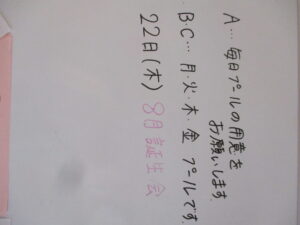 A… 毎日プールの用意を
お願いします
B.C… 月.火.木.金 プールです。
22日(木) 8月誕生会